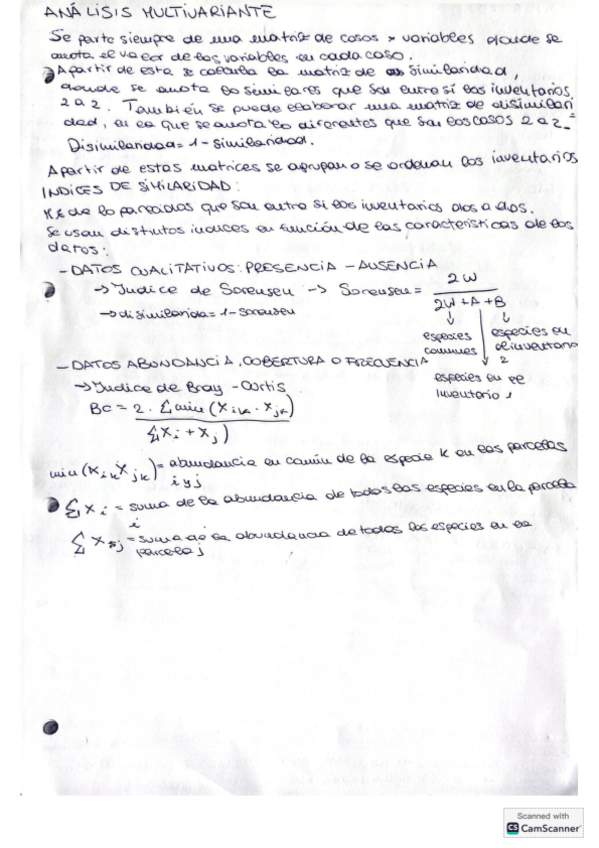 ANÁLISIS MULTIVARIANTE
Se parte siempre de una matriz de casos x variables donde se
anota el valor de las variables en cada caso.
A partir de esta se calcula la matriz de similaridad,
donde se anota lo similares que son entre sí los inventarios,
2 a 2. También se puede elaborar una matriz de disimilari
dad, en la que se anota lo diferentes que son los casos 2 a 2.
Disimilaridad = 1 - similaridad.
A partir de estas matrices se agrupan o se ordenan los inventarios
INDICES DE SIMILARIDAD:
de lo parecidos que son entre si los inventarios dos a dos.
Se usan distintos indices en función de las características de los
datos:
- DATOS CUALITATIVOS: PRESENCIA - AUSENCIA
→ Indice de Sorensen → Sorensen = 2W / 2W + A + B
→ disimilarida = 1 - sorensen
especies comunes
especies en el inventario 2
especies en el inventario 1
- DATOS ABUNDANCIA, COBERTURA O FRECUENCIA
→ Indice de Bray - Curtis
BC = 2 · Σ min (X ik · X jk)
Σ X i + X j)
min (X ik X jk) = abundancia en común de la especie K en las parcelas
i y j
Σ X i = suma de la abundancia de todos las especies en la parcela
i
Σ X j = suma de la abundancia de todos las especies en la
parcela j
Scanned with
CS CamScanner